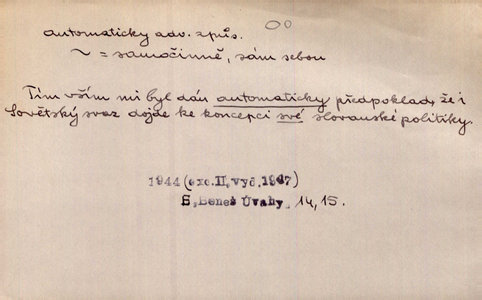 automaticky adv. způs.
~ = samočinně, sám sebou
Tím vším mi byl dán automaticky předpoklad, že i
Sovětský svaz dojde ke koncepci své slovanské politiky.
1944 (exc. II. vyd. 1947)
E. Beneš Úvahy 14, 15.